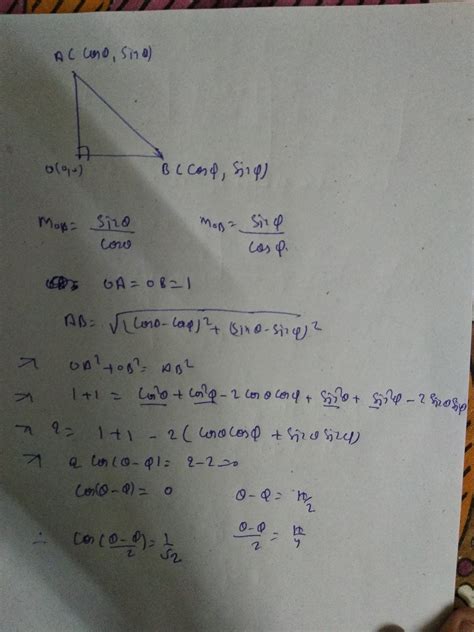 A(Cosθ, Sinθ)
O(0,0)
B(Cosφ, Sinφ)
m_OA = Sinθ/Cosθ m_OB = Sinφ/Cosφ
OA = OB = 1
AB = √((Cosθ-Cosφ)² + (Sinθ-Sinφ)²
⇒ OA² + OB² = AB²
⇒ 1+1 = Cos²θ + Cos²φ - 2 Cosθ Cosφ + Sin²θ + Sin²φ - 2 Sinθ Sinφ
⇒ 2 = 1+1 - 2(Cosθ Cosφ + Sinθ Sinφ)
⇒ 2 Cos(θ-φ) = 2-2 = 0
Cos(θ-φ) = 0 θ-φ = π/2
∴ Cos(θ-φ/2) = 1/√2 θ-φ/2 = π/4